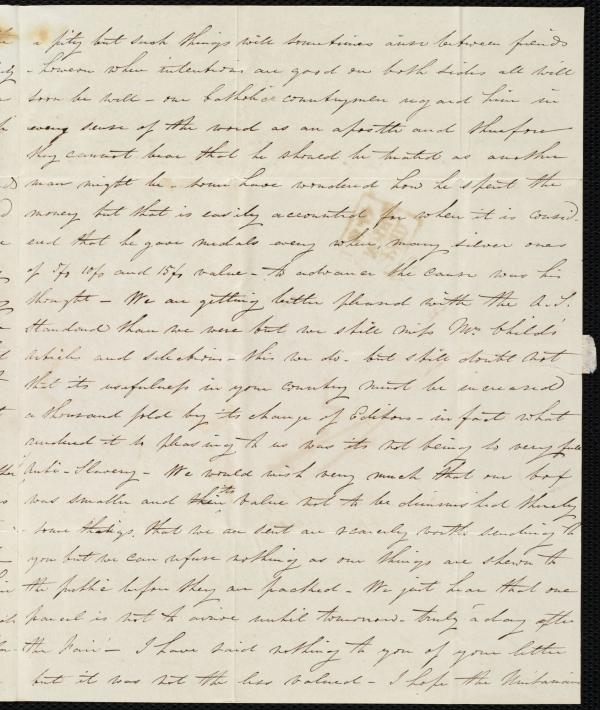 a pity but such things will sometimes arise between friends
- however when intentions are good on both sides all will
soon be well - our Catholic countrymen regard him in
every sense of the word as an apostle and therefore
they cannot bear that he should be treated as another
man might be - some have wondered how he spent the
money but that is easily accounted for when it is consid-
ered that he gave medals every where, many silver ones
of 5/s 10/s and 15/s value - to advance the cause was his
thought - We are getting better pleased with the A. S.
Standard than we were but we still miss Mrs Child's
articles and selections - this we do - but still doubt not
that its usefulness in your country must be increased
a thousand fold by its change of Editors - in fact what
rendered it so pleasing to us was its not being so very full
Anti-Slavery - We would wish very much that our box
was smaller and its value not to be diminished thereby
- some things that we are sent are scarcely worth sending to
you but we can refuse nothing as our things are shewn to
the public before they are packed - We just hear that one
parcel is not to arrive until tomorrow - truly "a day after
the Fair" - I have said nothing to you of your letter
but it was not the less valued - I hope the Unitarian